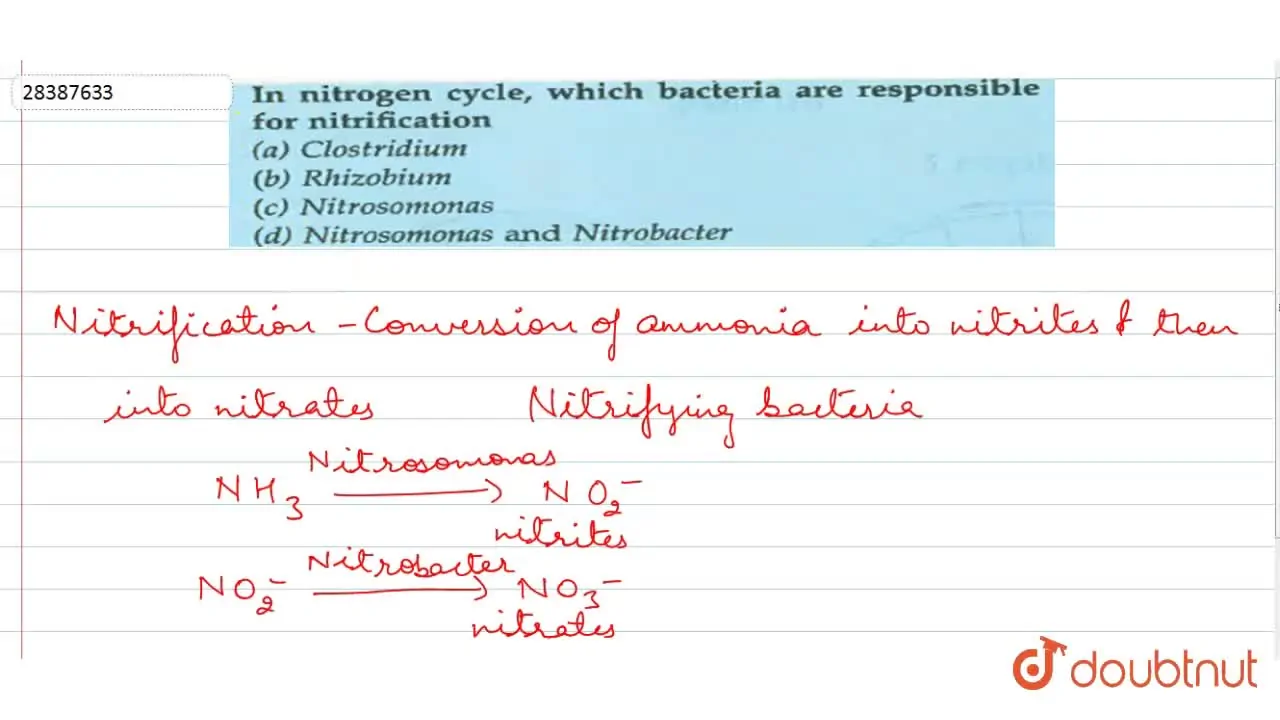 28387633
In nitrogen cycle, which bacteria are responsible
for nitrification
(a) Clostridium
(b) Rhizobium
(c) Nitrosomonas
(d) Nitrosomonas and Nitrobacter
Nitrification - Conversion of ammonia into nitrites & then
into nitrates Nitrifying bacteria
Nitrosomonas
NH₃ ⟶ NO₂⁻
nitrites
Nitrobacter
NO₂⁻ ⟶ NO₃⁻
nitrates
doubtnut